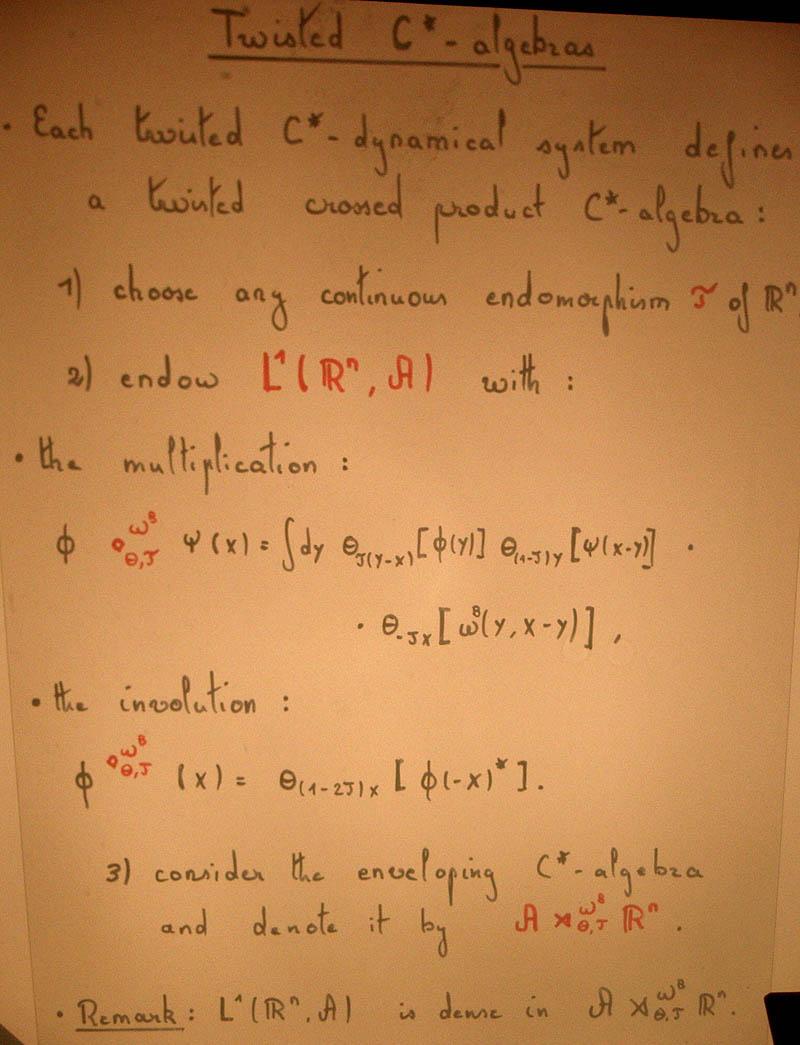 Twisted C*-algebras
• Each twisted C*-dynamical system defines
a twisted crossed product C*-algebra :
1) choose any continuous endomorphism J of ℝⁿ
2) endow L¹(ℝⁿ, A) with :
• the multiplication :
ϕ ⋄^{ω^B}_{θ,J} ψ(x) = ∫dy θ_{J(y-x)}[ϕ(y)] θ_{(1-J)y}[ψ(x-y)] ·
· θ_{-Jx}[ω^B(y, x-y)] ,
• the involution :
ϕ^{⋄^{ω^B}_{θ,J}} (x) = θ_{(1-2J)x} [ϕ(-x)*] .
3) consider the enveloping C*-algebra
and denote it by A ⋊^{ω^B}_{θ,J} ℝⁿ .
• Remark : L¹(ℝⁿ, A) is dense in A ⋊^{ω^B}_{θ,J} ℝⁿ.